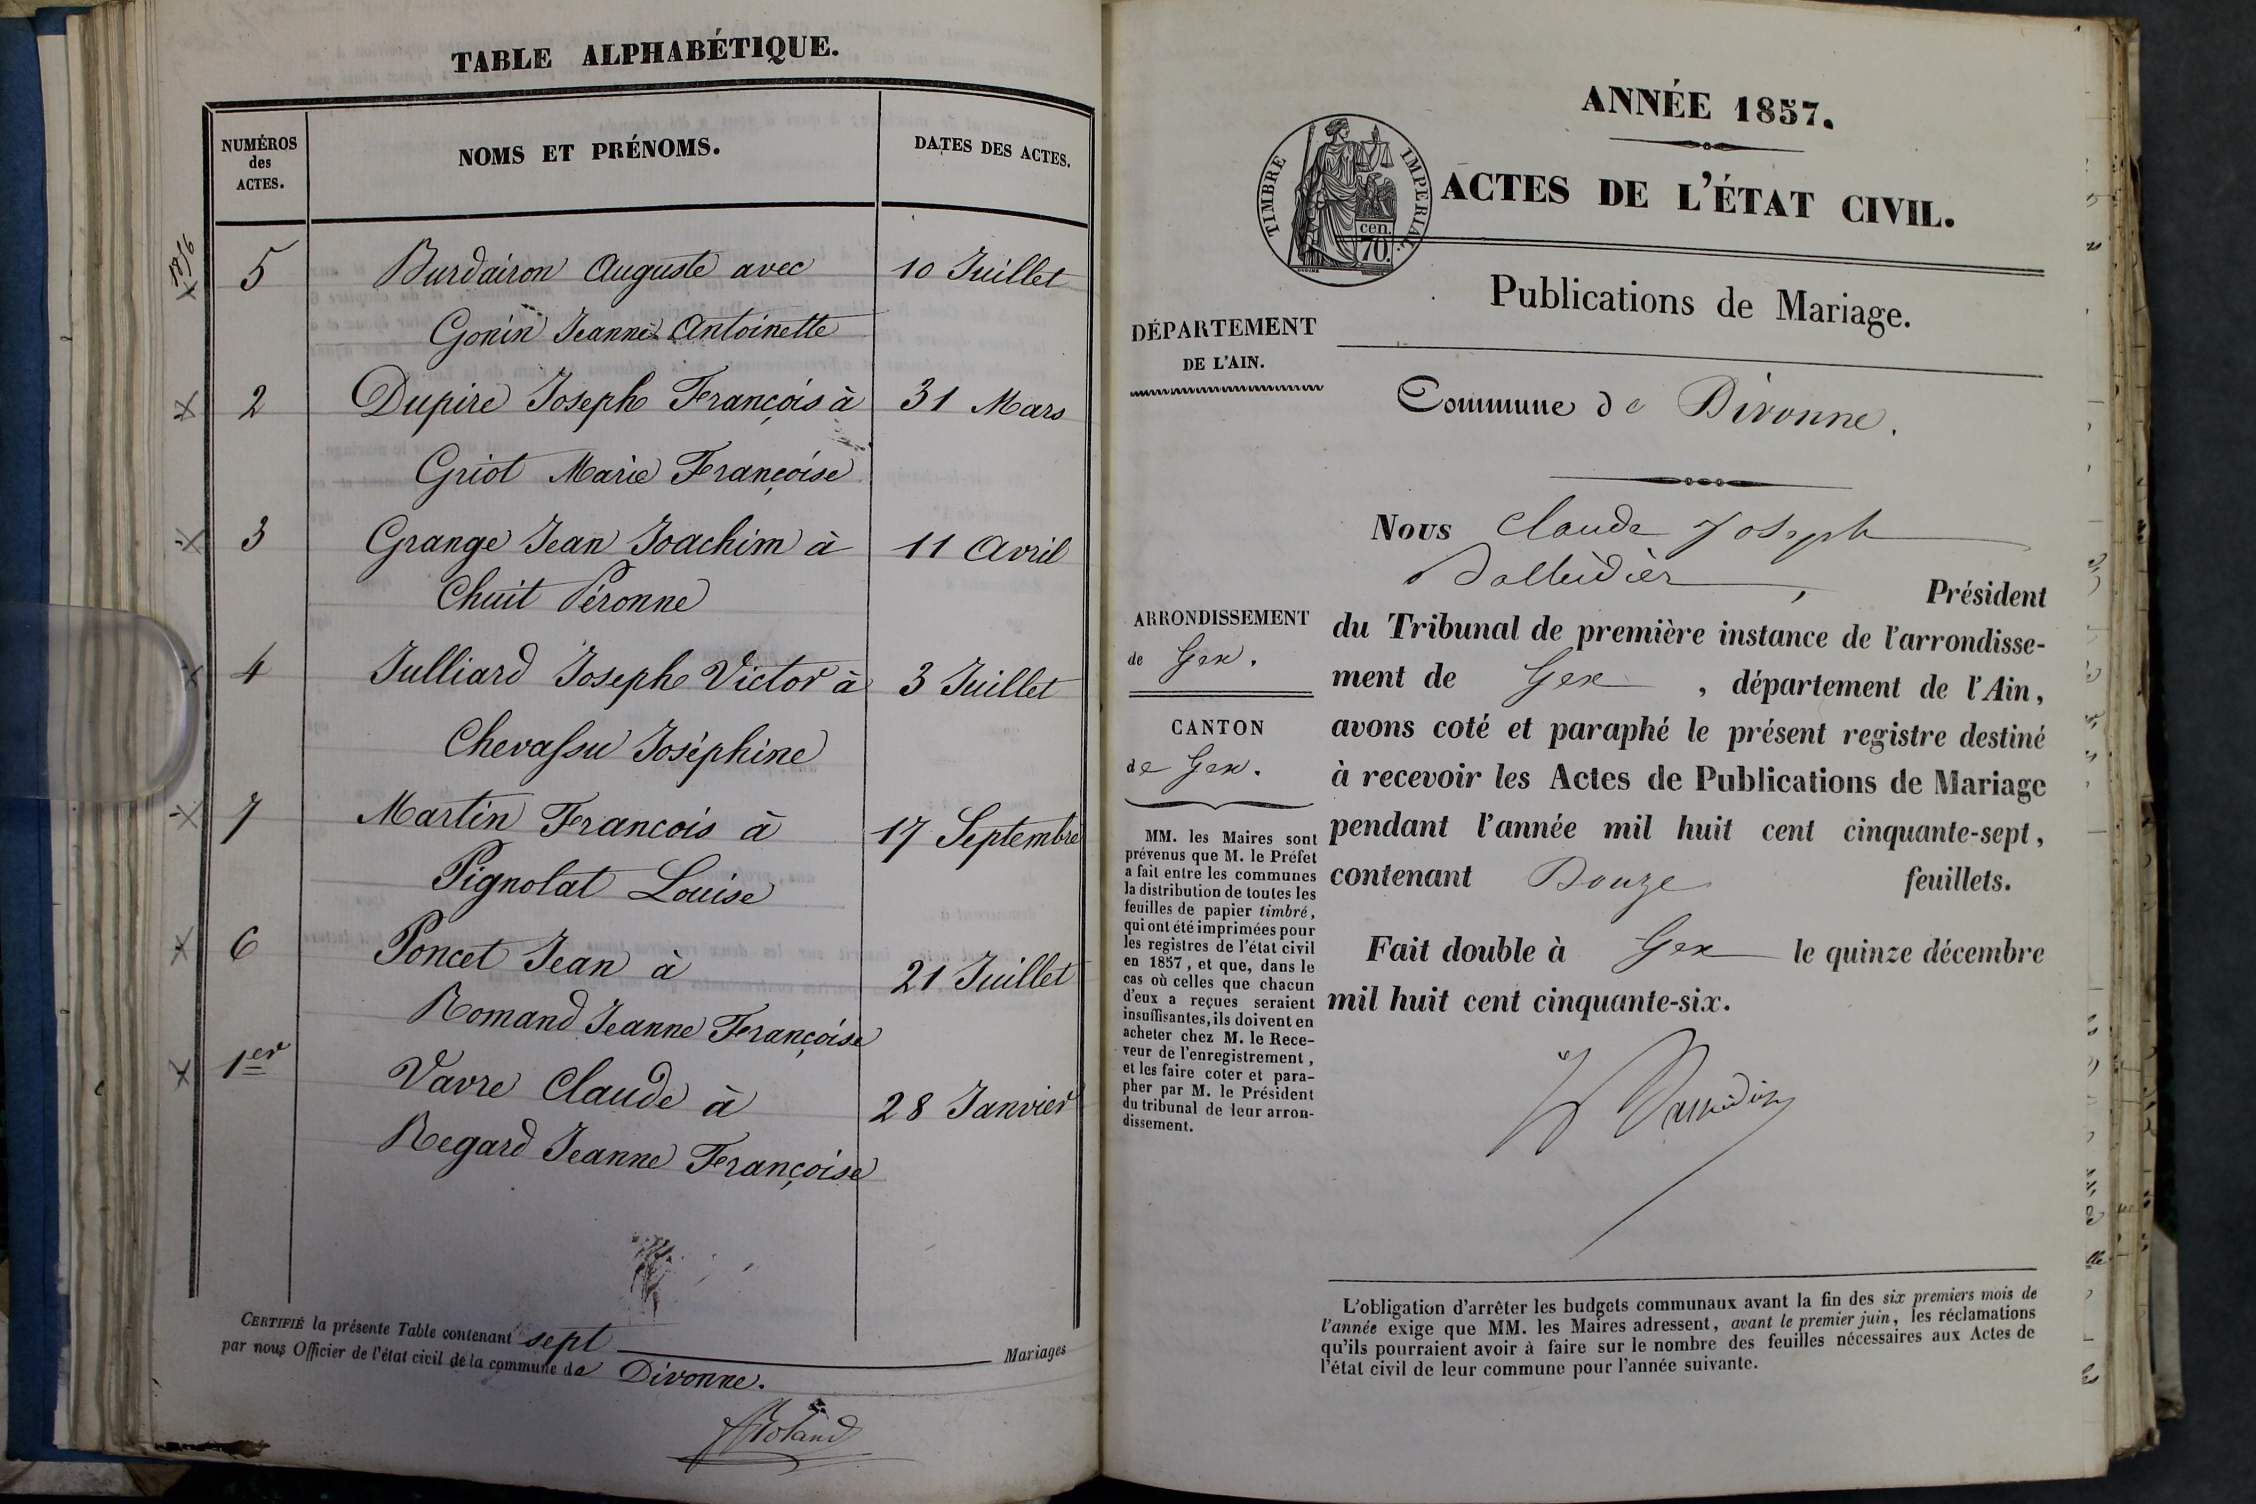 TABLE ALPHABÉTIQUE.
NUMÉROS
des
ACTES.
NOMS ET PRÉNOMS.
DATES DES ACTES.
1856
5 Burdairon Auguste avec 10 Juillet
Gonin Jeanne Antoinette
2 Dupire Joseph François à 31 Mars
Griot Marie Françoise
3 Grange Jean Joachim à 11 Avril
Chuit Péronne
4 Julliard Joseph Victor à 3 Juillet
Chevassu Joséphine
7 Martin Francois à 17 Septembre
Pignolat Louise
6 Poncet Jean à 21 Juillet
Romand Jeanne Françoise
1er Vavre Claude à 28 Janvier
Regard Jeanne Françoise
CERTIFIÉ la présente Table contenant sept Mariages
par nous Officier de l'état civil de la commune de Divonne.
Roland
ANNÉE 1857.
TIMBRE IMPÉRIAL
cen.
70.
ACTES DE L'ÉTAT CIVIL.
Publications de Mariage.
DÉPARTEMENT
DE L'AIN.
Commune de Divonne.
Nous Claude Joseph
, Président
ARRONDISSEMENT
de Gex.
CANTON
de Gex.
du Tribunal de première instance de l'arrondisse-
ment de Gex , département de l'Ain,
avons coté et paraphé le présent registre destiné
à recevoir les Actes de Publications de Mariage
pendant l'année mil huit cent cinquante-sept,
contenant Douze feuillets.
Fait double à Gex le quinze décembre
mil huit cent cinquante-six.
MM. les Maires sont
prévenus que M. le Préfet
a fait entre les communes
la distribution de toutes les
feuilles de papier timbré,
qui ont été imprimées pour
les registres de l'état civil
en 1857, et que, dans le
cas où celles que chacun
d'eux a reçues seraient
insuffisantes, ils doivent en
acheter chez M. le Rece-
veur de l'enregistrement,
et les faire coter et para-
pher par M. le Président
du tribunal de leur arron-
dissement.
L'obligation d'arrêter les budgets communaux avant la fin des six premiers mois de
l'année exige que MM. les Maires adressent, avant le premier juin, les réclamations
qu'ils pourraient avoir à faire sur le nombre des feuilles nécessaires aux Actes de
l'état civil de leur commune pour l'année suivante.